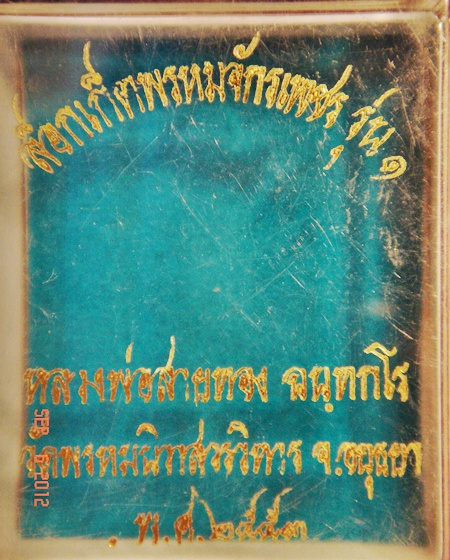 ล็อกเก็ตพรหมจักรเพชร รุ่น ๑
หลวงพ่อสายทอง ฉนฺทกโร
วัดพรหมนิวาสวรวิหาร จ.อยุธยา
พ.ศ.๒๕๕๓
SEP 2012